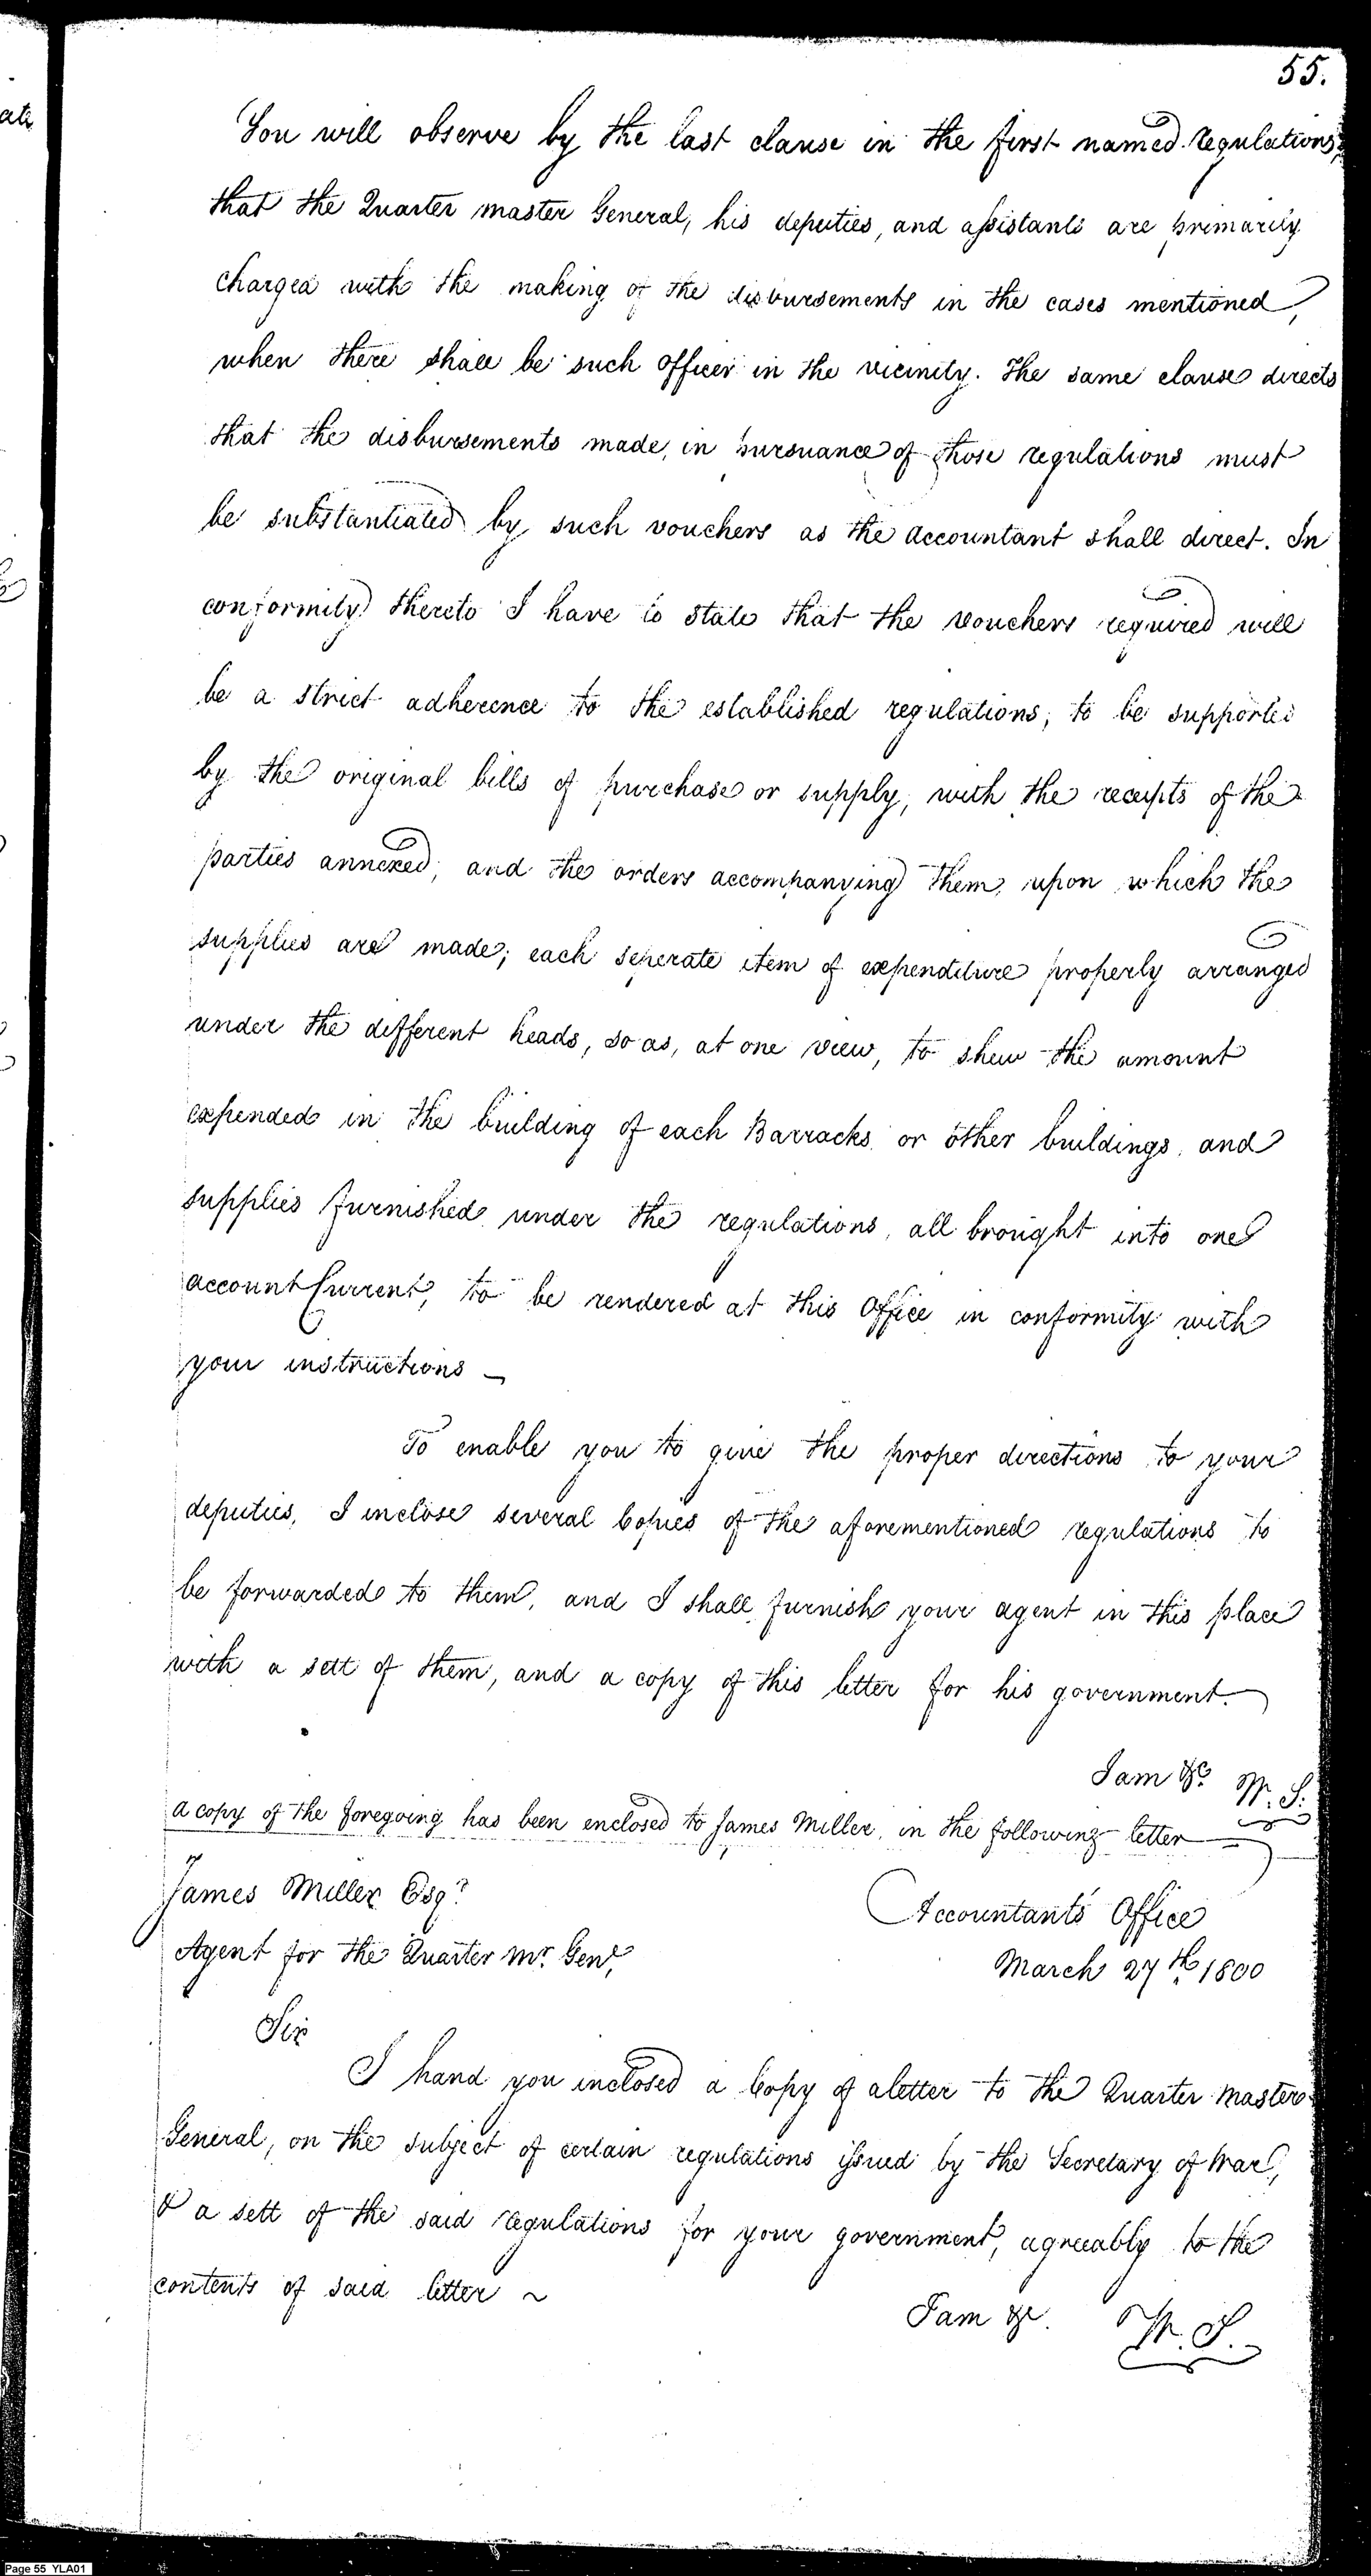 55.
You will observe by the last clause in the first named regulations,
that the Quarter master General, his deputies, and assistants are primarily
charged with the making of the disbursements in the cases mentioned,
when there shall be such officer in the vicinity. The same clause directs
that the disbursements made, in pursuance of those regulations must
be substantiated by such vouchers as the accountant shall direct. In
conformity thereto I have to state that the vouchers required will
be a strict adherence to the established regulations, to be supported
by the original bills of purchase or supply, with the receipts of the
parties annexed, and the orders accompanying them, upon which the
supplies are made; each seperate item of expenditure properly arranged
under the different heads, so as, at one view, to shew the amount
expended in the building of each Barracks or other buildings, and
supplies furnished under the regulations, all brought into one
account Current, to be rendered at this Office in conformity with
your instructions –
To enable you to give the proper directions to your
deputies, I inclose several Copies of the aforementioned regulations to
be forwarded to them, and I shall furnish your agent in this place
with a sett of them, and a copy of this letter for his government.
I am &c. W. S.
a copy of the foregoing has been enclosed to James Miller, in the following letter
James Miller Esqr.
Agent for the Quarter Mr. Genl.
Accountants Office
March 27th 1800
Sir
I hand you inclosed a Copy of a letter to the Quarter Master
General, on the subject of certain regulations issued by the Secretary of War,
& a sett of the said regulations for your government, agreeably to the
contents of said letter ~
I am &c. W. S.
Page 55 YLA01